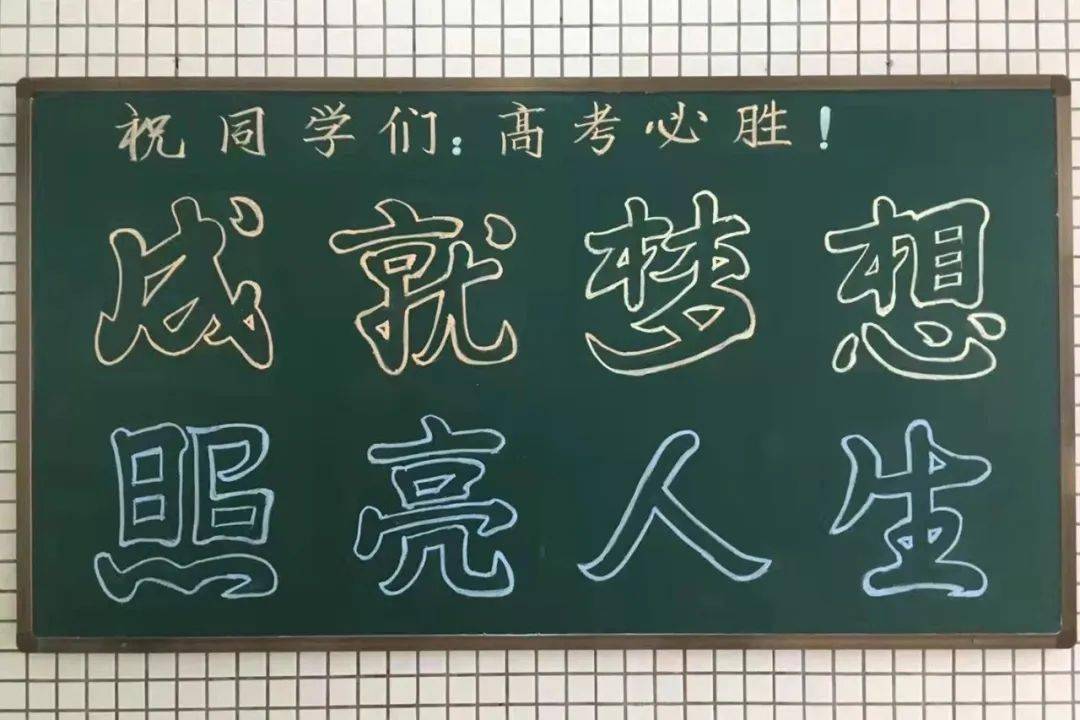 祝同学们：高考必胜！
成就梦想
照亮人生